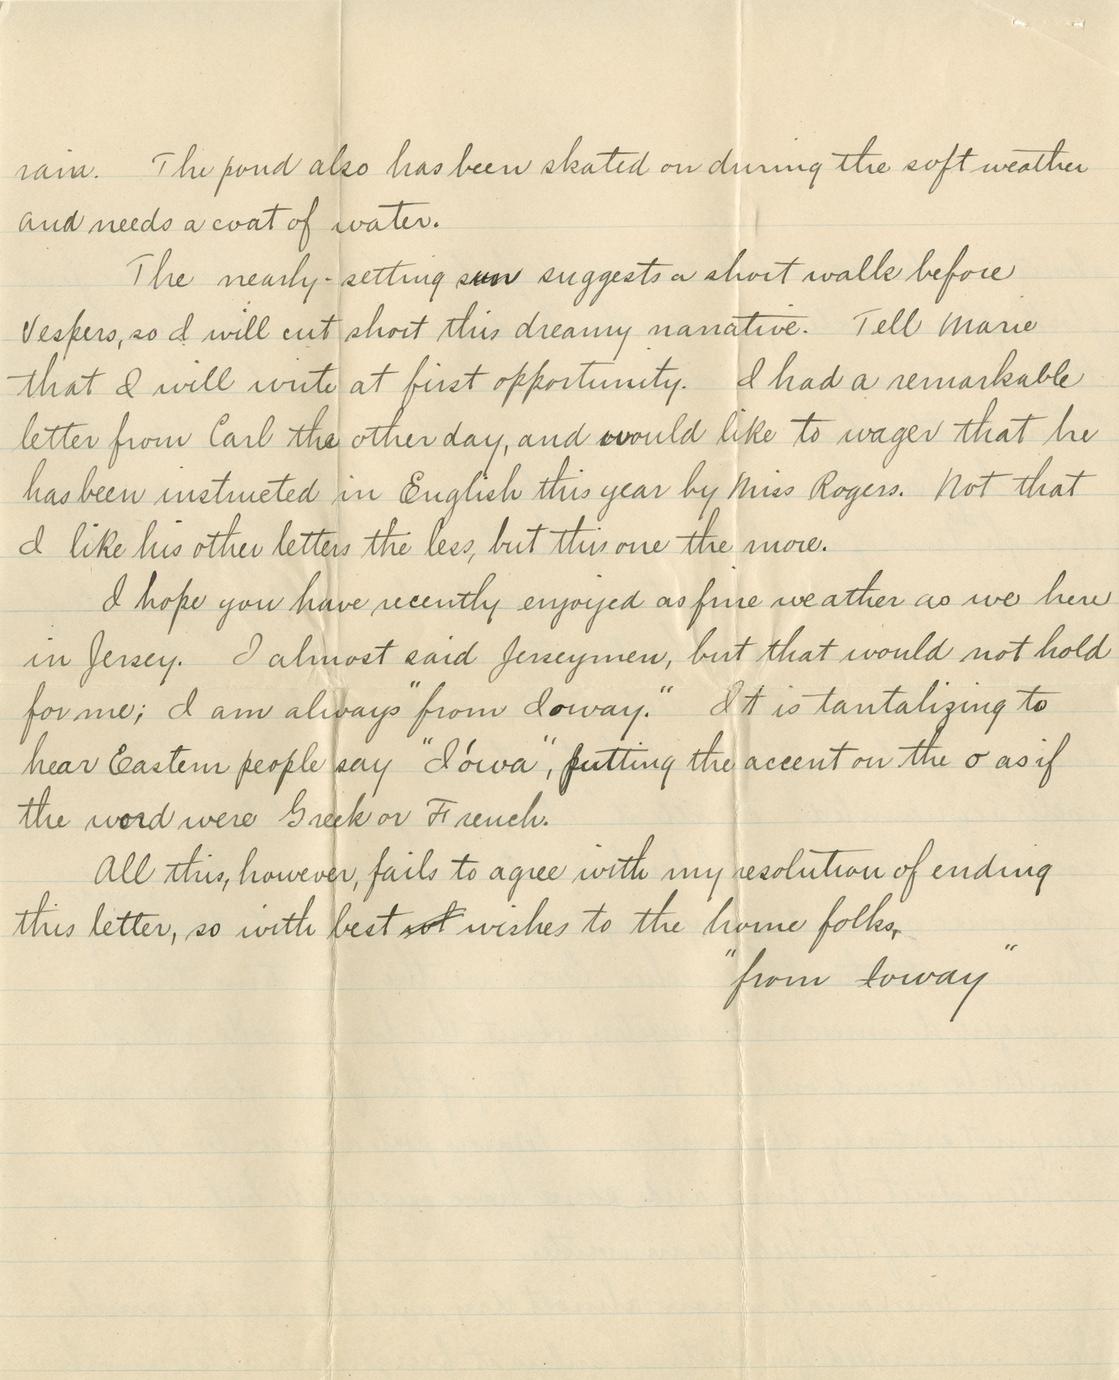 rain. The pond also has been skated on during the soft weather
and needs a coat of water.
The nearly-setting sun suggests a short walk before
Vespers, so I will cut short this dreamy narrative. Tell Marie
that I will write at first opportunity. I had a remarkable
letter from Carl the other day, and would like to wager that he
has been instructed in English this year by Miss Rogers. Not that
I like his other letters the less, but this one the more.
I hope you have recently enjoyed as fine weather as we here
in Jersey. I almost said Jerseymen, but that would not hold
for me; I am always "from Ioway." It is tantalizing to
hear Eastern people say "Iówa", putting the accent on the o as if
the word were Greek or French.
All this, however, fails to agree with my resolution of ending
this letter, so with best wishes to the home folks,
"from Ioway"